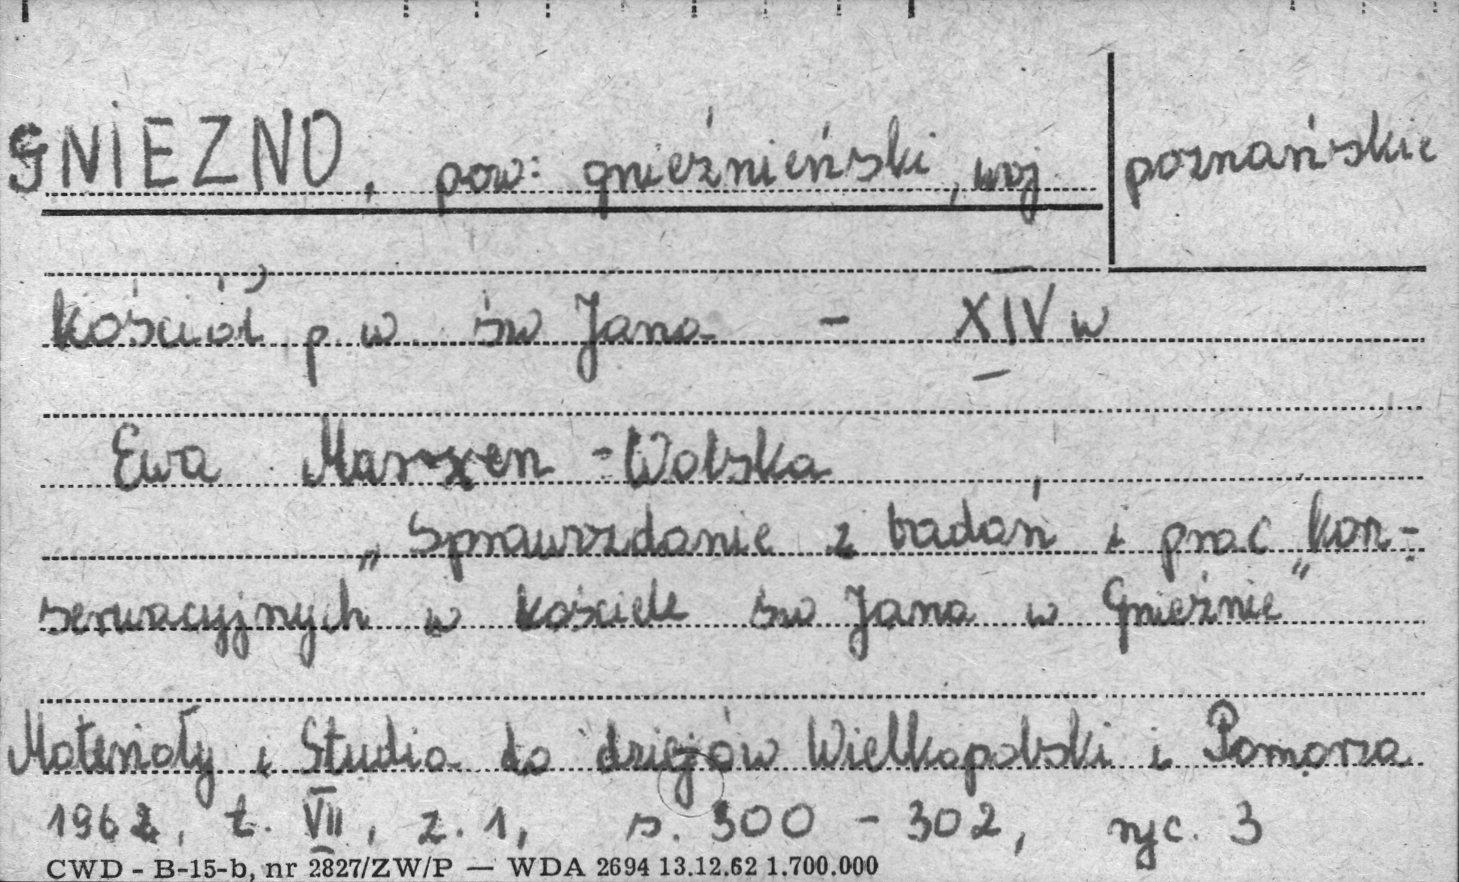 GNIEZNO, pow: gnieźnieński, woj poznańskie
kościół p w św Jana - XIV w
Ewa Marxen-Wolska
„Sprawozdanie z badań i prac kon-
serwacyjnych w kościele św Jana w Gnieźnie"
Materiały i Studia do dziejów Wielkopolski i Pomorza
1962, t. VII, z. 1, s. 300 - 302, ryc. 3
CWD - B-15-b, nr 2827/ZW/P — WDA 2694 13.12.62 1.700.000